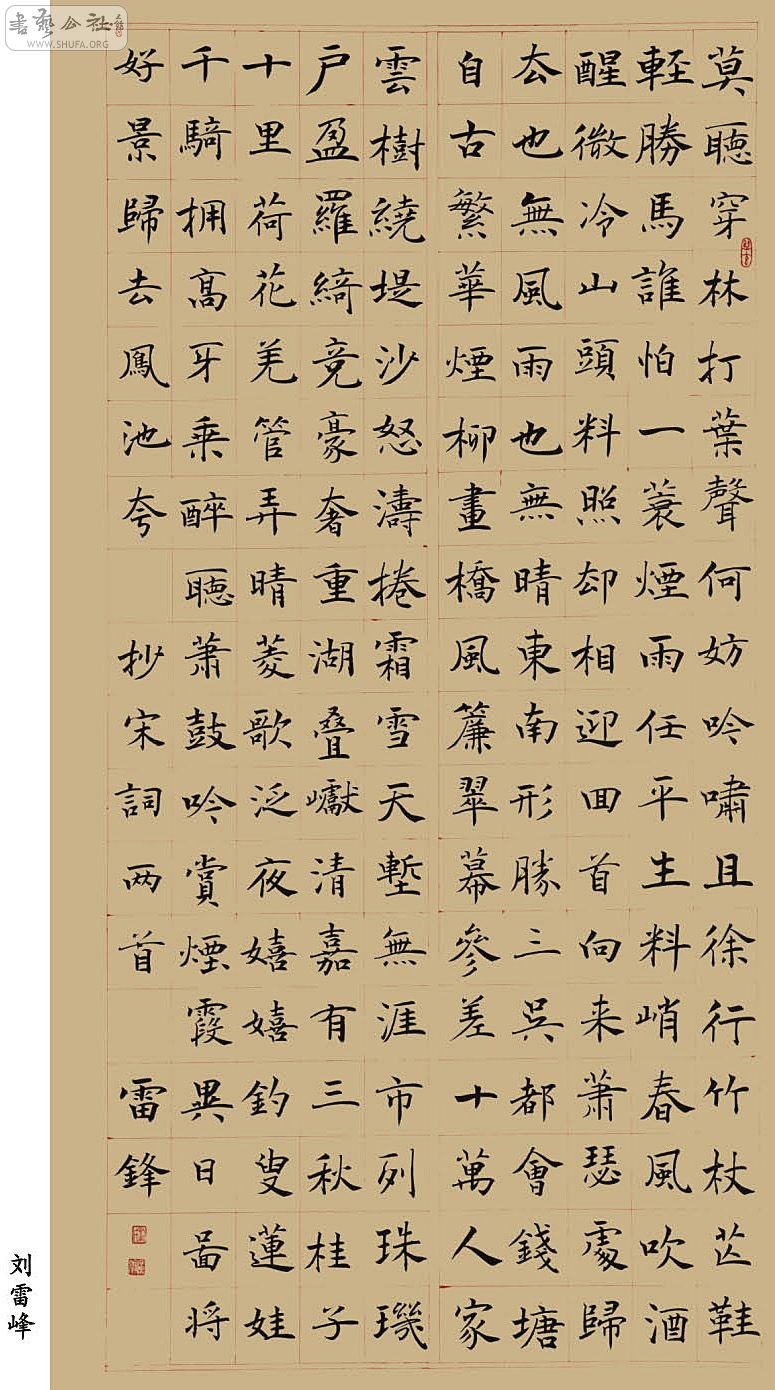 莫聽穿林打葉聲何妨吟嘯且徐行竹杖芒鞋
輕勝馬誰怕一蓑煙雨任平生料峭春風吹酒
醒微冷山頭料照却相迎回首向来蕭瑟處歸
去也無風雨也無晴東南形勝三吳都會錢塘
自古繁華煙柳畫橋風簾翠幕參差十萬人家
雲樹繞堤沙怒濤捲霜雪天塹無涯市列珠璣
户盈羅綺竞豪奢重湖叠巘清嘉有三秋桂子
十里荷花羌管弄晴菱歌泛夜嬉嬉釣叟蓮娃
千騎拥高牙乘醉聽蕭鼓吟賞煙霞異日啚将
好景歸去鳳池夸 抄宋詞两首 雷鋒
刘雷峰
書藝公社
www.SHUFA.ORG